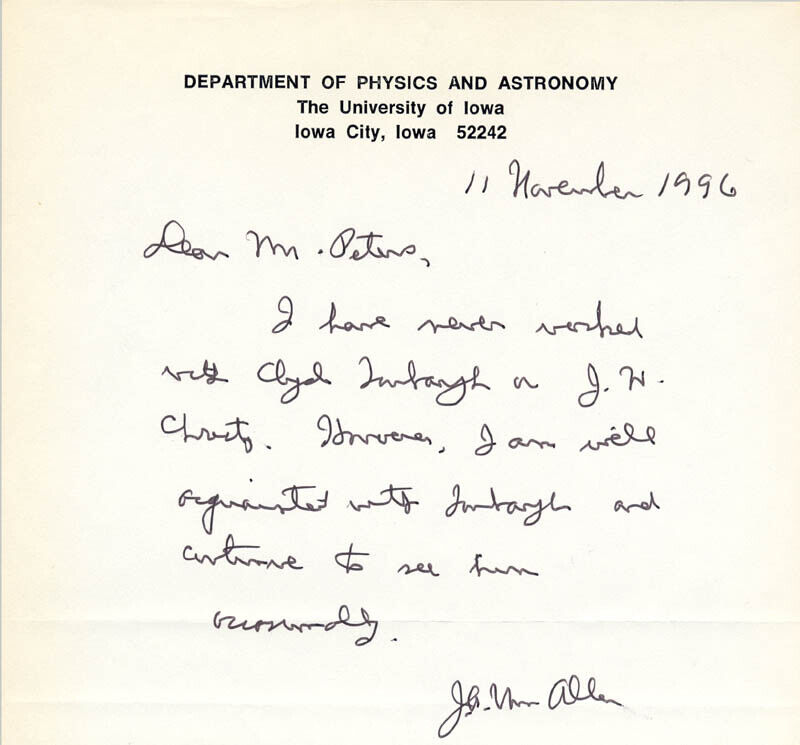 DEPARTMENT OF PHYSICS AND ASTRONOMY
The University of Iowa
Iowa City, Iowa 52242
11 November 1996
Dear Mr. Peters,
I have never worked
with Clyde Tombaugh or J. W.
Christy. However, I am well
acquainted with Tombaugh and
continue to see him
occasionally.
J.A. Van Allen